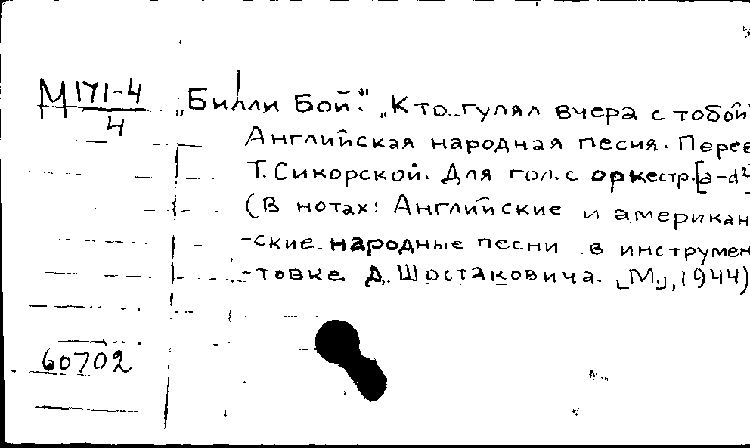 М 171-4
4
„Билли Бой." „Кто гулял вчера с тобой
Английская народная песня. Перев
Т. Сикорской. Для гол. с оркестр. [а-d²]
(В нотах: Английские и американ
-ские народные песни в инструмен
-товке Д. Шостаковича. [М.], 1944)
60702